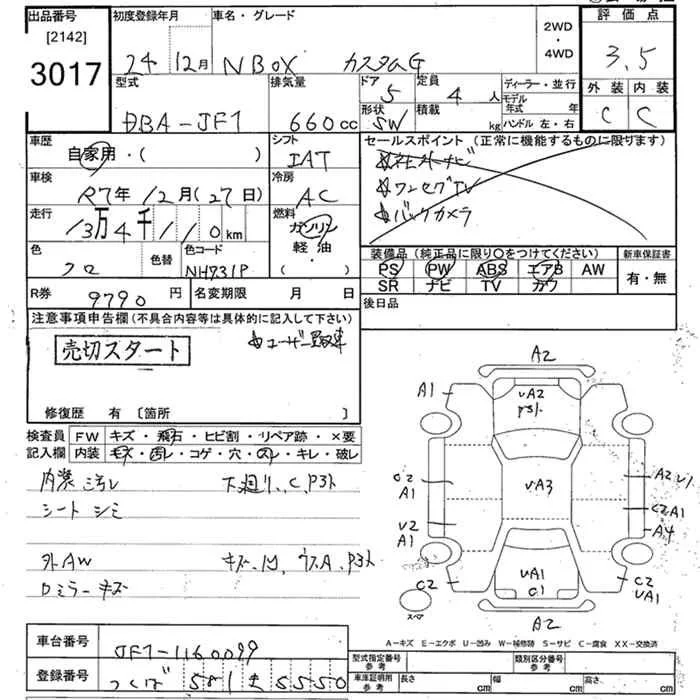 出品番号
[2142]
3017
初度登録年月
24 12月
車名・グレード
NBOX カスタムG
2WD
・
4WD
評価点
3.5
外装 内装
C C
型式
DBA-JF1
排気量
660cc
ドア
5
定員
4人
形状
SW
積載
kg
ディーラー・並行
モデル年式 年
ハンドル 左・右
車歴
自家用・( )
シフト
IAT
セールスポイント (正常に機能するものに限ります)
☆ワンセグTV
☆バックカメラ
車検
R7年 12月(27日)
冷房
AC
走行
13万4千110km
燃料
ガソリン
軽油
( )
色
クロ
色替
色コード
NH731P
装備品 (純正品に限り○をつけてください)
PS PW ABS エアB AW
SR ナビ TV カワ
新車保証書
有・無
R券 9790円
名変期限 月 日
後日品
注意事項申告欄 (不具合内容等は具体的に記入して下さい)
売切スタート
☆ユーザー買取車
修復歴 有 [箇所 ]
検査員 FW キズ・飛石・ヒビ割・リペア跡・×要
記入欄 内装 モズ・凹レ・コゲ・穴・スレ・キレ・破レ
内装 ヨゴレ 下廻り、C、P3ト
シート シミ
外AW キズ、凹、ウスA、P3ト
Dミラーキズ
A2
A1
UA2
UA3
A2 U1
A1
C2 A1
U2
A1
A4
C2
UA1
C1
C2
UA1
A2
スペア
A-キズ E-エクボ U-凹み W-補修跡 S-サビ C-腐食 XX-交換済
車台番号
JF1-1160099
登録番号
つくば 581 ま 5550
型式指定番号
参考
類別区分番号
参考
車庫証明用
参考
長さ cm
幅 cm
高さ cm